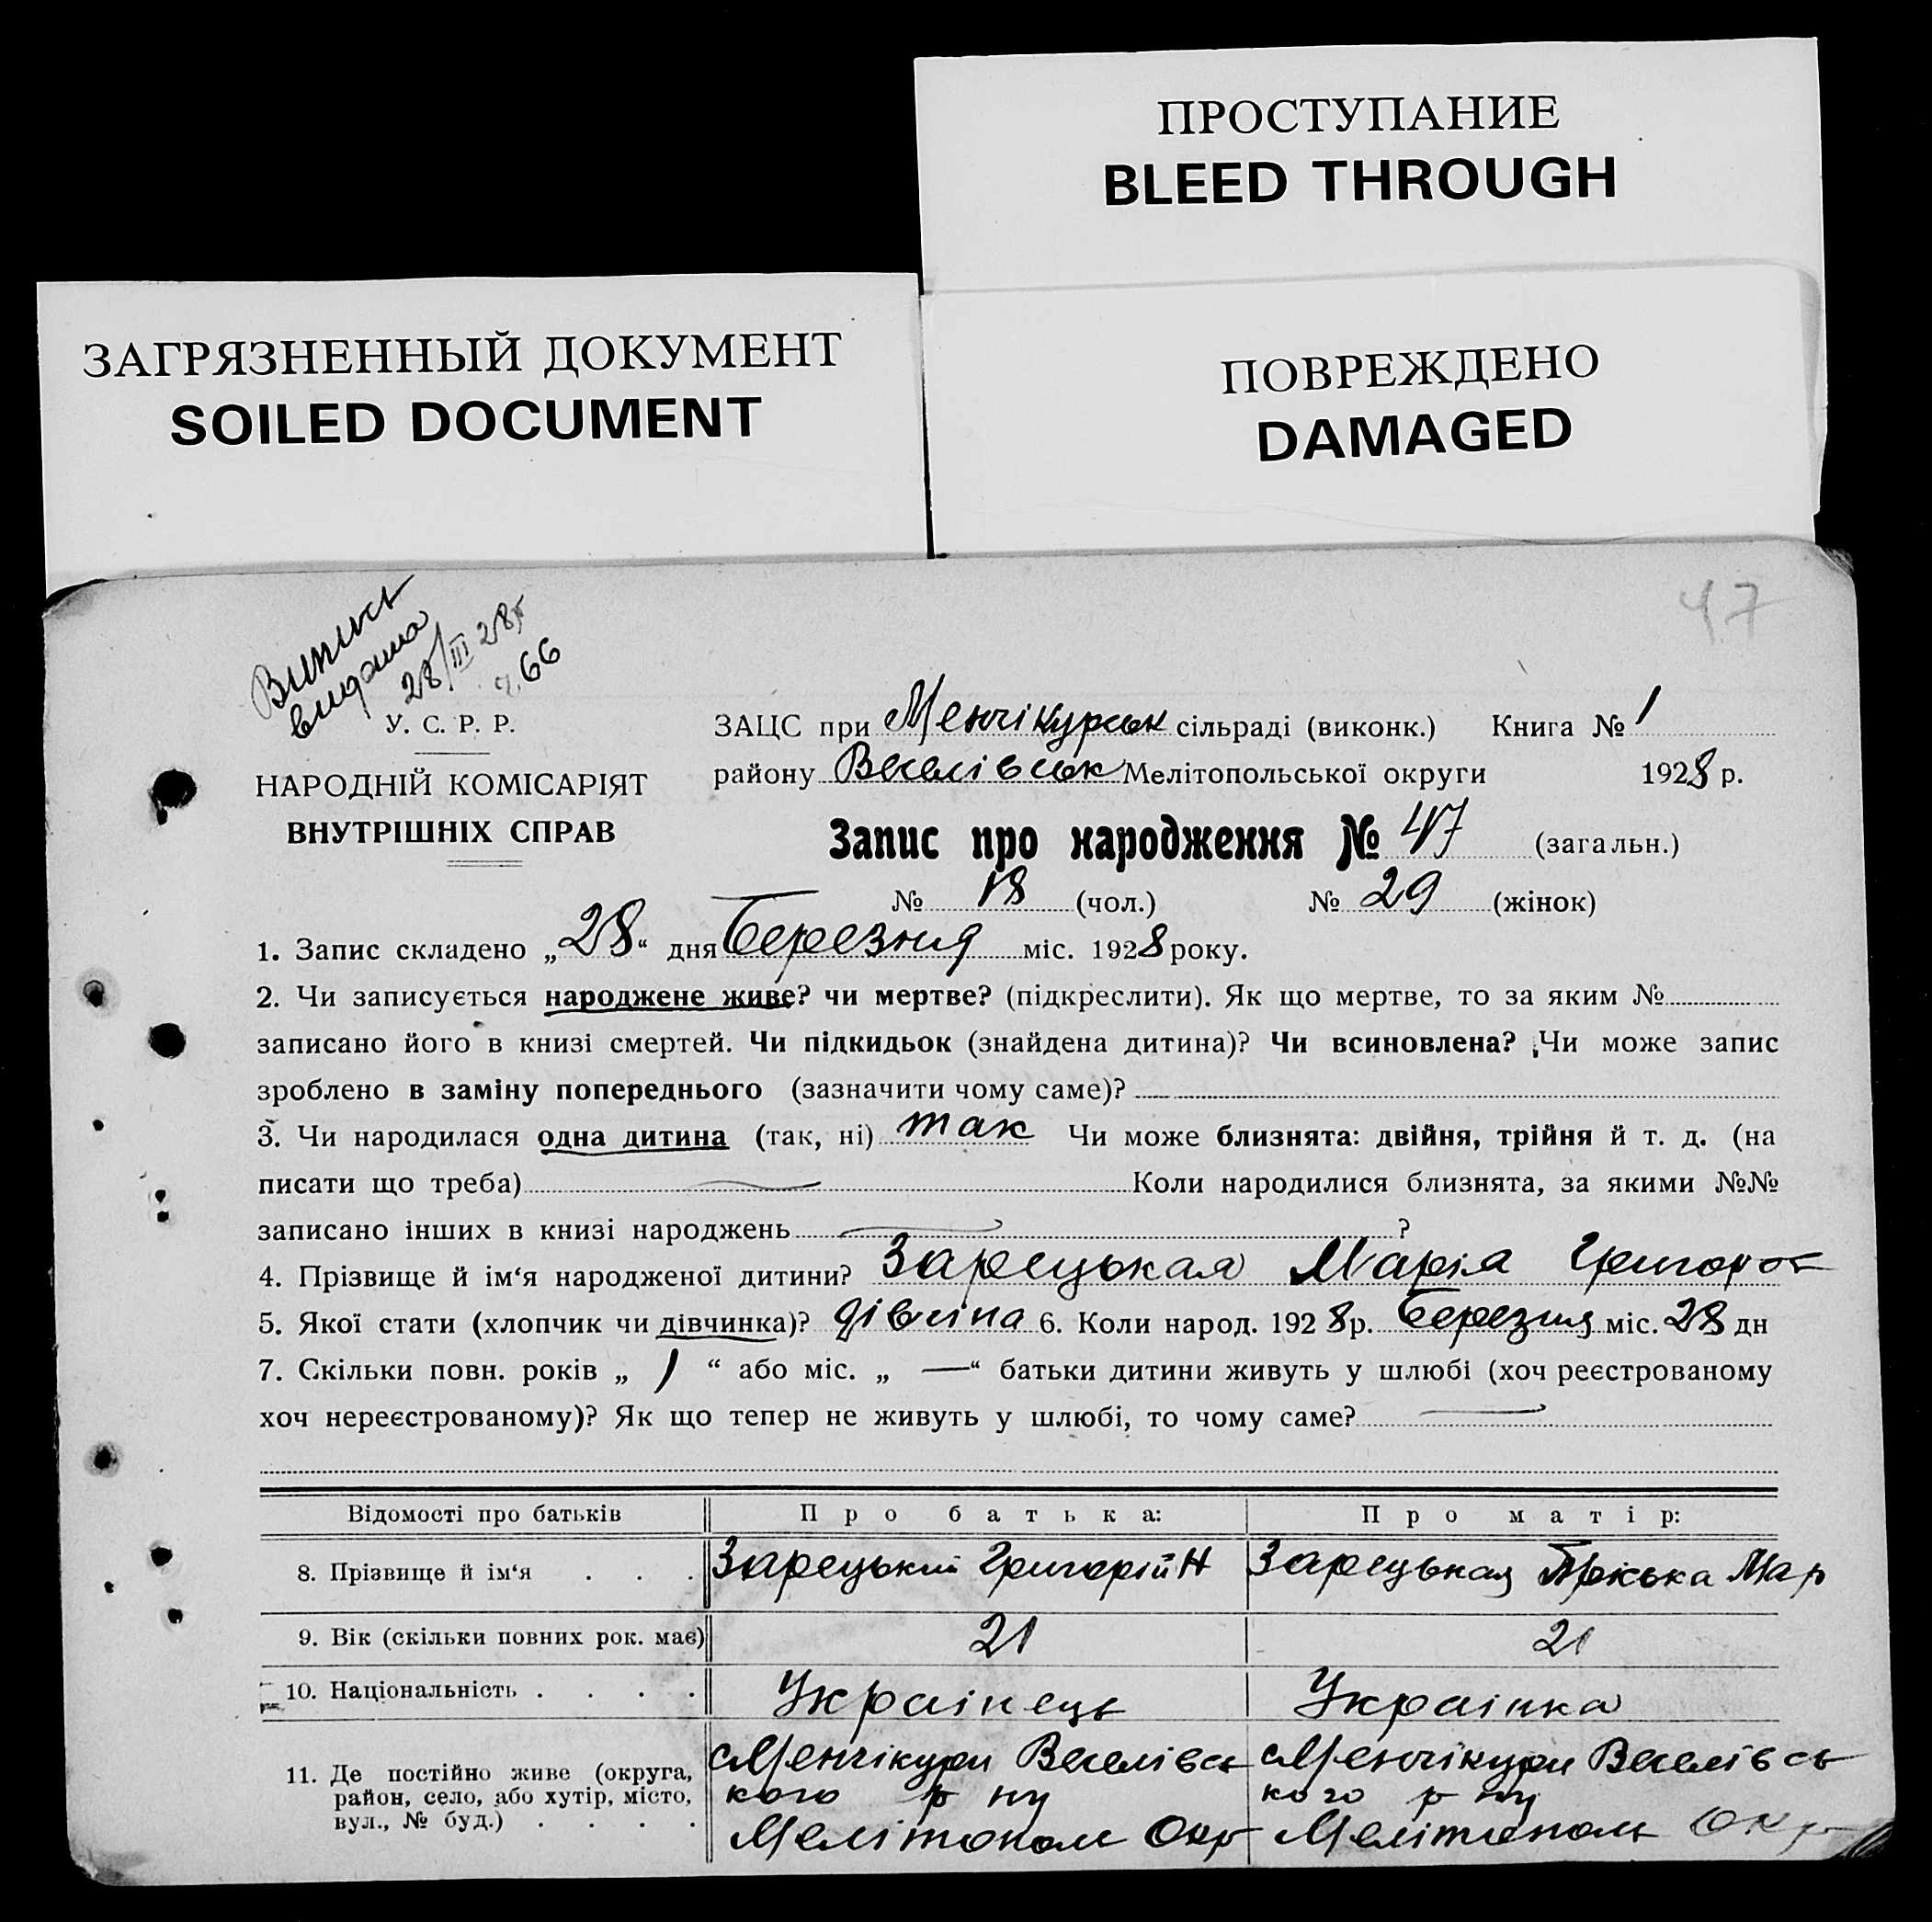 ПРОСТУПАНИЕ
BLEED THROUGH
ЗАГРЯЗНЕННЫЙ ДОКУМЕНТ
SOILED DOCUMENT
ПОВРЕЖДЕНО
DAMAGED
47
Випись
видана
28/III 28р
66
У. С. Р. Р.
НАРОДНІЙ КОМІСАРІЯТ
ВНУТРІШНІХ СПРАВ
ЗАЦС при Менчікурськ сільраді (виконк.) Книга № 1
району Веселівськ Мелітопольської округи 1928 р.
Запис про народження № 47 (загальн.)
№ 18 (чол.) № 29 (жінок)
1. Запис складено „28“ дня Березня міс. 1928 року.
2. Чи записується народжене живе? чи мертве? (підкреслити). Як що мертве, то за яким №
записано його в книзі смертей. Чи підкидьок (знайдена дитина)? Чи всиновлена? Чи може запис
зроблено в заміну попереднього (зазначити чому саме)?
3. Чи народилася одна дитина (так, ні) так Чи може близнята: двійня, трійня й т. д. (на
писати що треба) — Коли народилися близнята, за якими №№
записано інших в книзі народжень — ?
4. Прізвище й ім‘я народженої дитини? Зарецькая Марія Григоров
5. Якої стати (хлопчик чи дівчинка)? дівчина 6. Коли народ. 1928 р. Березня міс. 28 дн
7. Скільки повн. років „ 1 “ або міс. „ — “ батьки дитини живуть у шлюбі (хоч реєстрованому
хоч нереєстрованому)? Як що тепер не живуть у шлюбі, то чому саме? —
Відомості про батьків Про батька: Про матір:
8. Прізвище й ім‘я . . . Зарецький Григорій Н Зарецькая Пріська Мар
9. Вік (скільки повних рок. має) 21 21
10. Національність . . . . Украінець Украінка
11. Де постійно живе (округа,
район, село, або хутір, місто,
вул., № буд.) . . . .
Менчікури Веселівсь
кого р ну
Мелітополь Окр
Менчікури Веселівсь
кого р ну
Мелітополь Окр